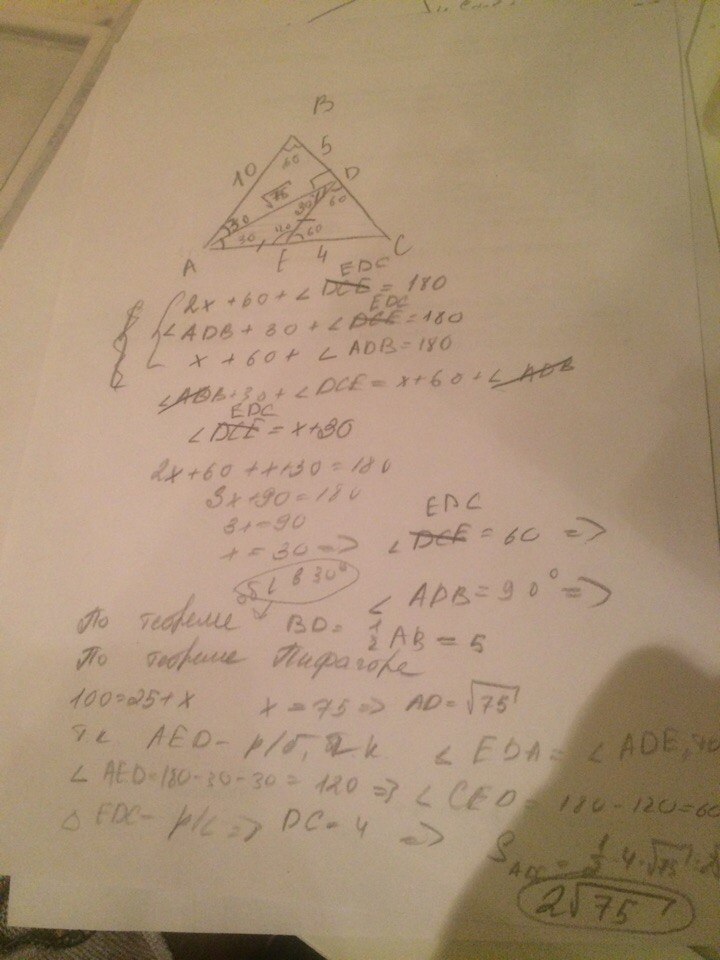 B
10
60
5
D
√75
30
60
30
30
120
60
A
E
4
C
EDC
2x + 60 + ∠ DCE = 180
EDC
∠ADB + 30 + ∠DCE = 180
x + 60 + ∠ ADB = 180
∠ADB + 30 + ∠DCE = x + 60 + ∠ADB
EDC
∠DCE = x + 30
2x + 60 + x + 30 = 180
3x + 90 = 180
3x = 90
x = 30 =>
EDC
∠DCE = 60 =>
об ∠ в 30°
∠ ADB = 90° =>
По теореме BD = 1/2 AB = 5
По теореме Пифагоре
100 = 25 + x x = 75 => AD = √75
Тк AED - р/б, т к ∠ EDA = ∠ ADE,
∠ AED = 180 - 30 - 30 = 120 => ∠ CED = 180 - 120 = 60
△ EDC - р/с => DC = 4 =>
= 1/2 · 4 · √75
2√75